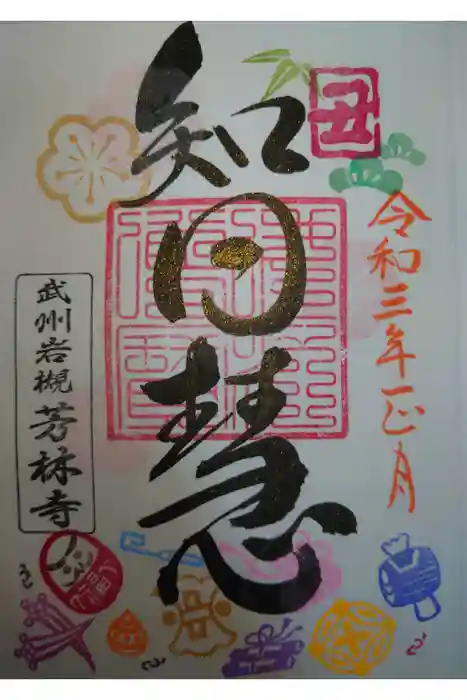 丑
令和三年正月
知日慧
武州岩槻芳林寺